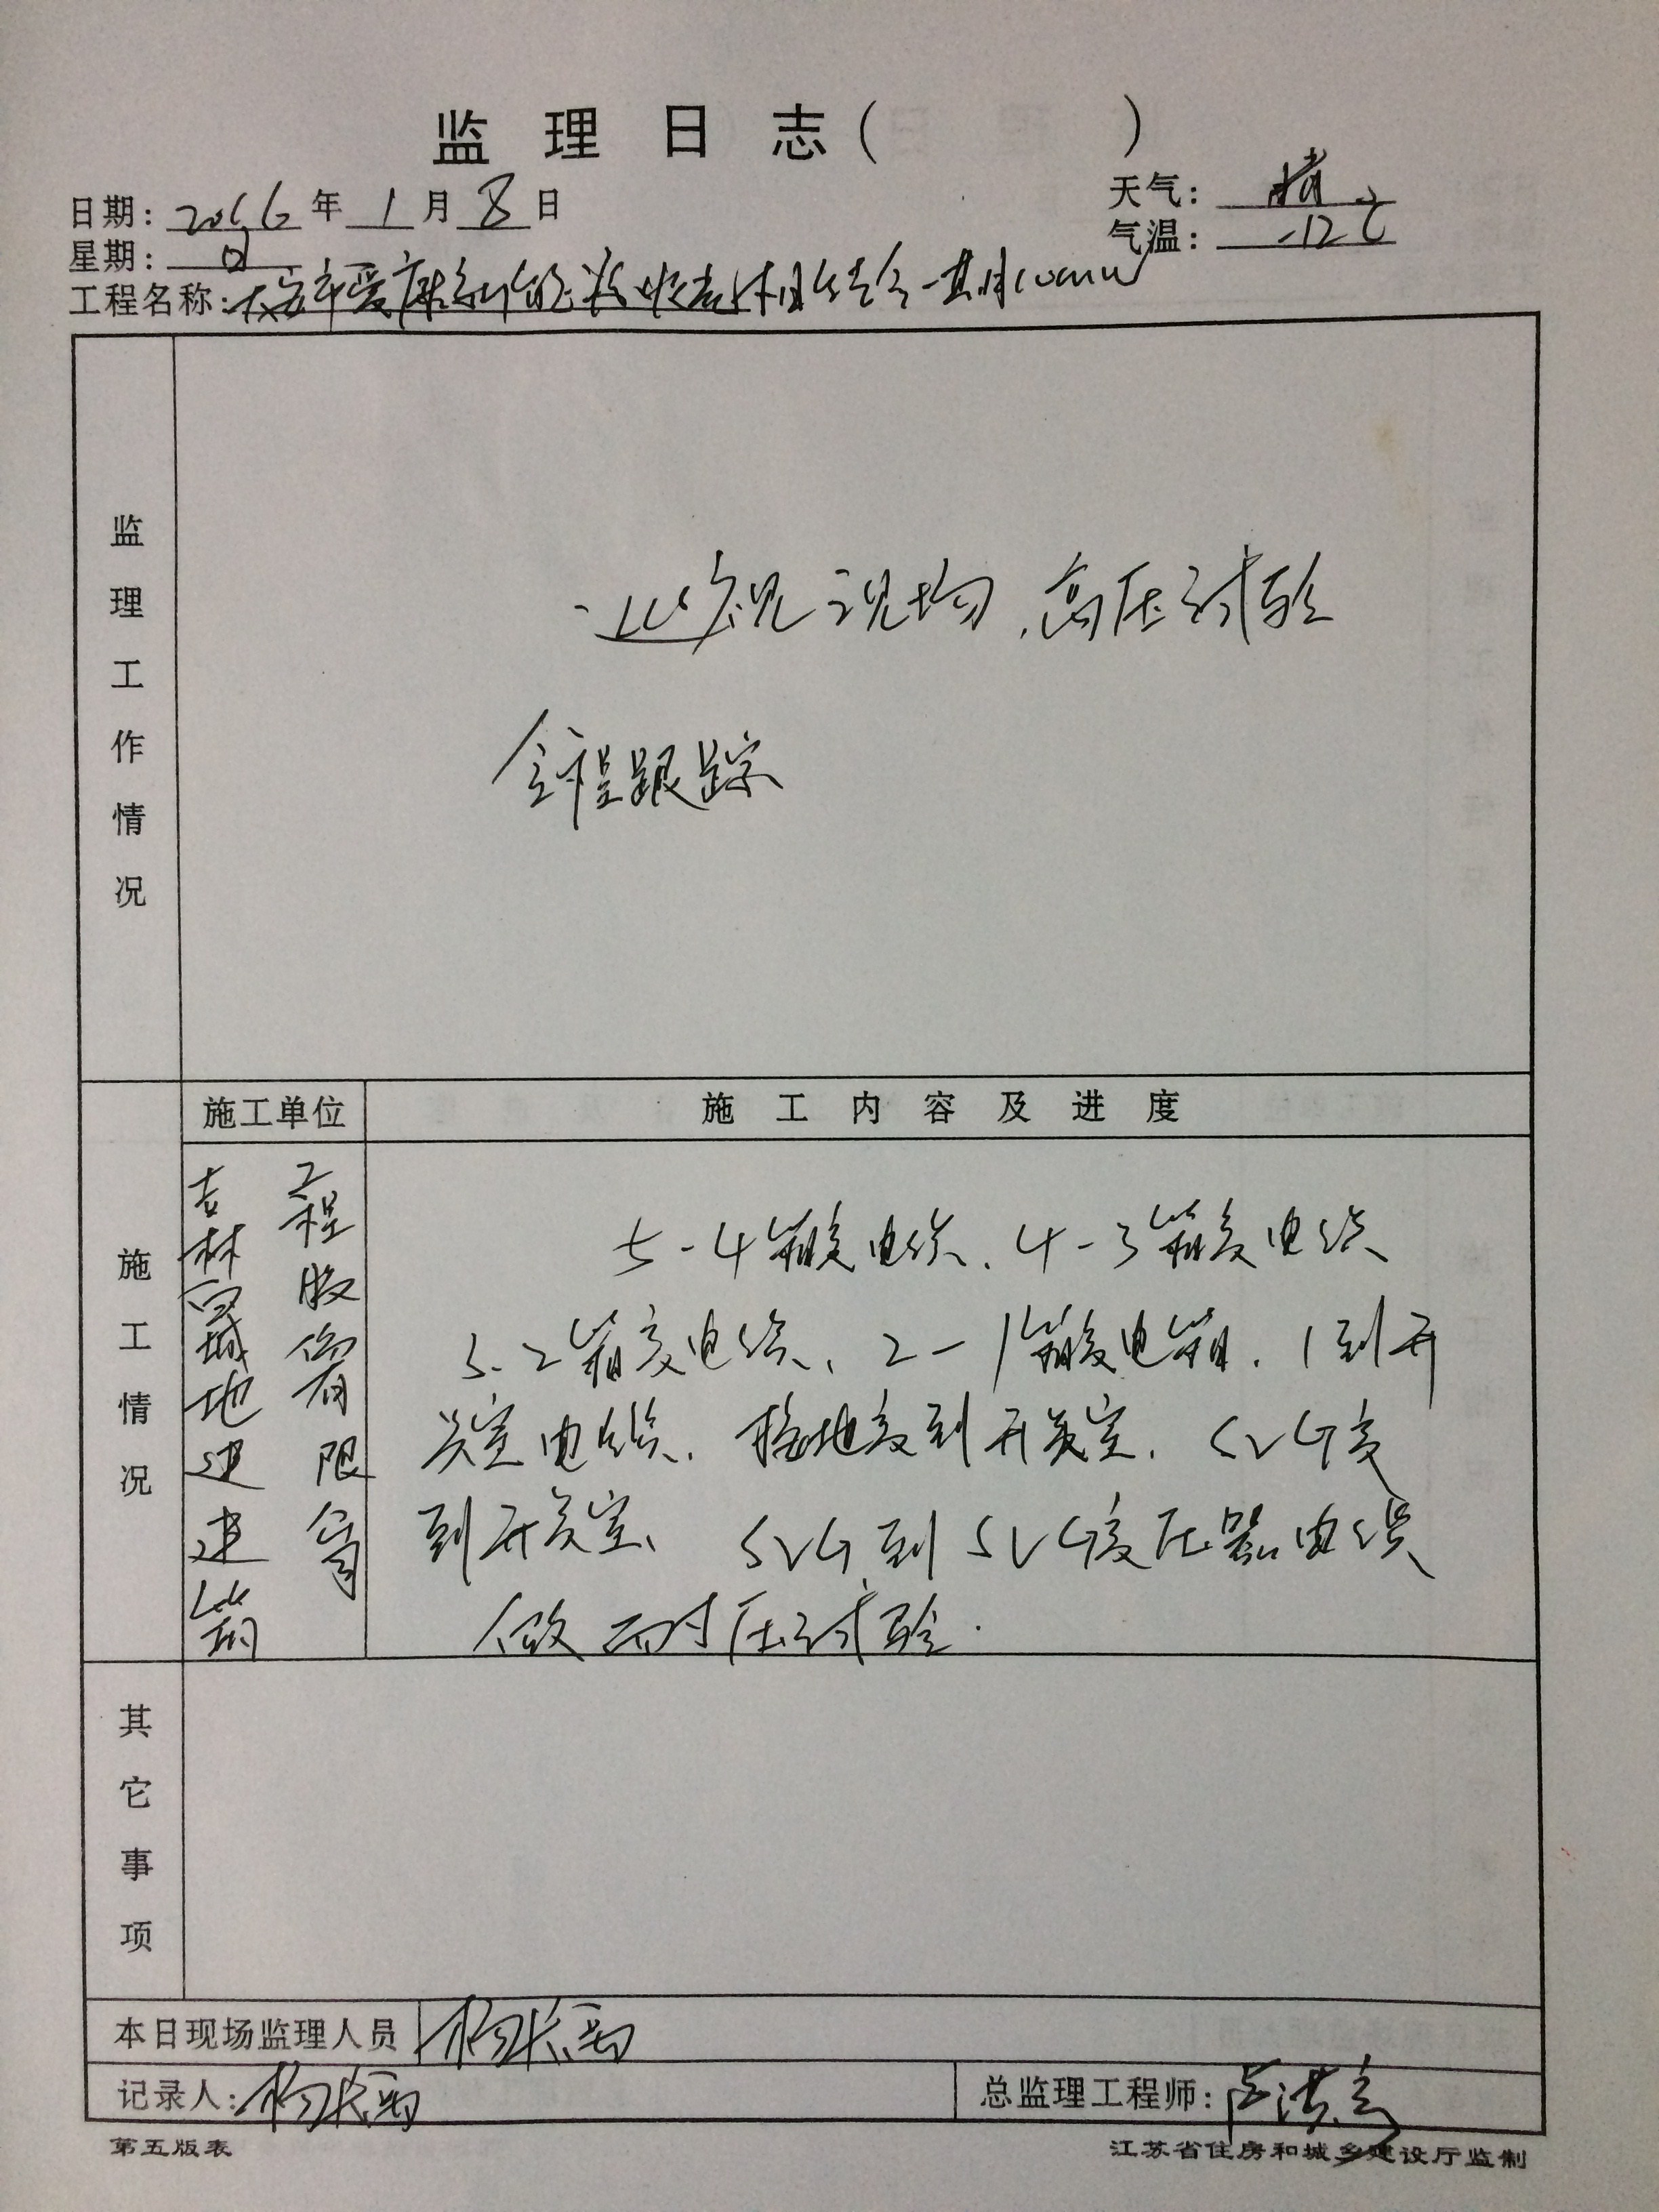 监理日志( )
日期: 2016 年 1 月 8 日
天气: 晴
星期: 日
气温: -12℃
工程名称:
监理工作情况
巡视现场、高压试验
全程跟踪
施工单位
施工内容及进度
施工情况
吉林 城地建建筑
工程股份有限公司
5-4箱变电缆、4-3箱变电缆
3-2箱变电缆、2-1箱变电箱、1到开
关室电缆、接地变到开关室、SVG变
到开关室、SVG到SVG变压器电缆
做耐压试验.
其它事项
本日现场监理人员
记录人:
总监理工程师:
第五版表
江苏省住房和城乡建设厅监制